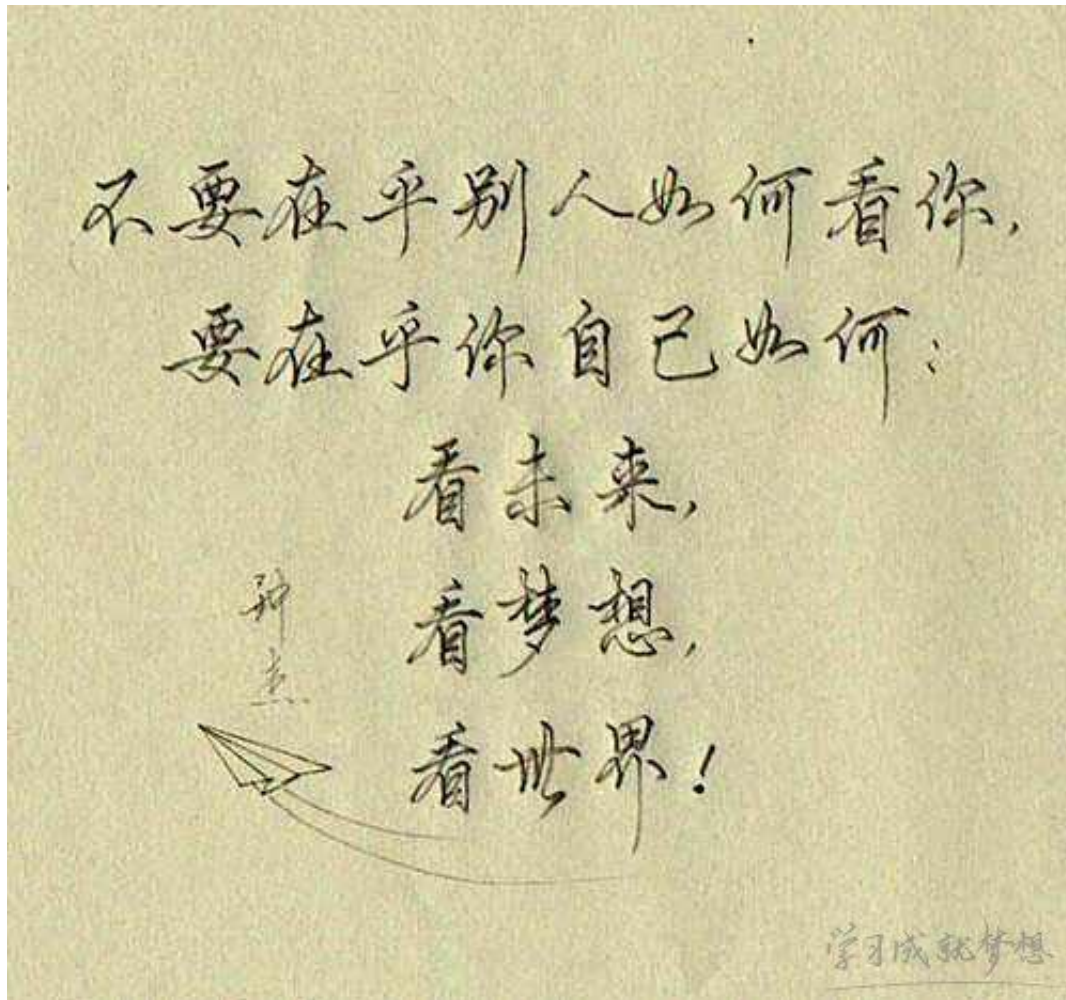 不要在乎别人如何看你,
要在乎你自己如何:
看未来,
看梦想,
看世界!
学习成就梦想